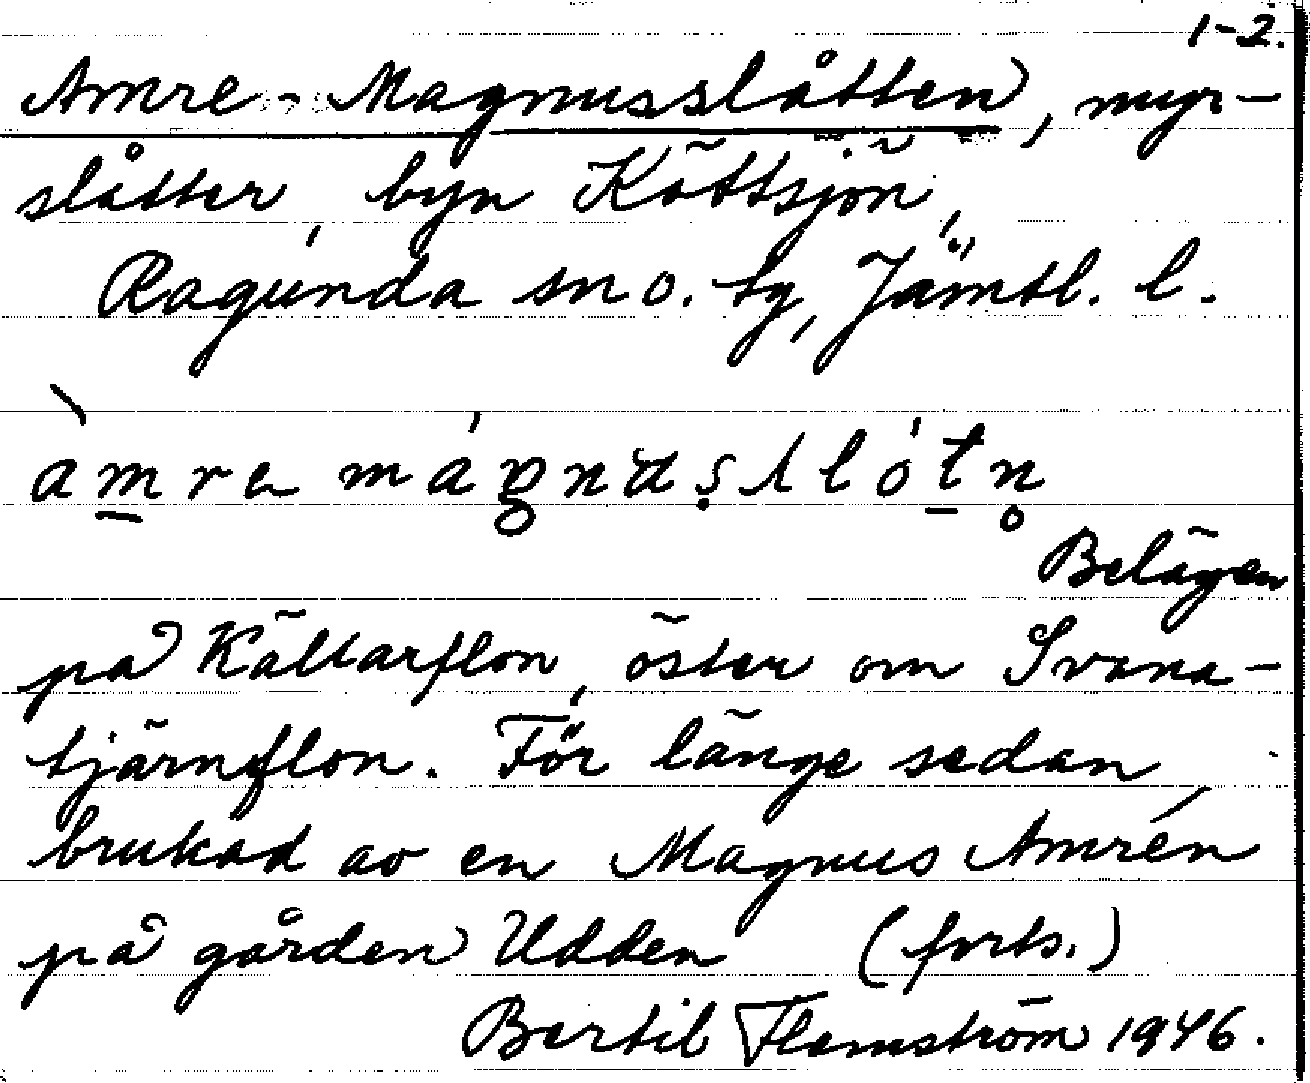 1-2.
Amre-Magnusslåtten, myr-
slåtter, byn Köttsjön,
Ragunda sn o. tg, Jämtl. l.
Belägen
på Källarflon, öster om Svana-
tjärnflon. För länge sedan
brukad av en Magnus Amrén
på gården Udden (forts.)
Bertil Flemström 1946.